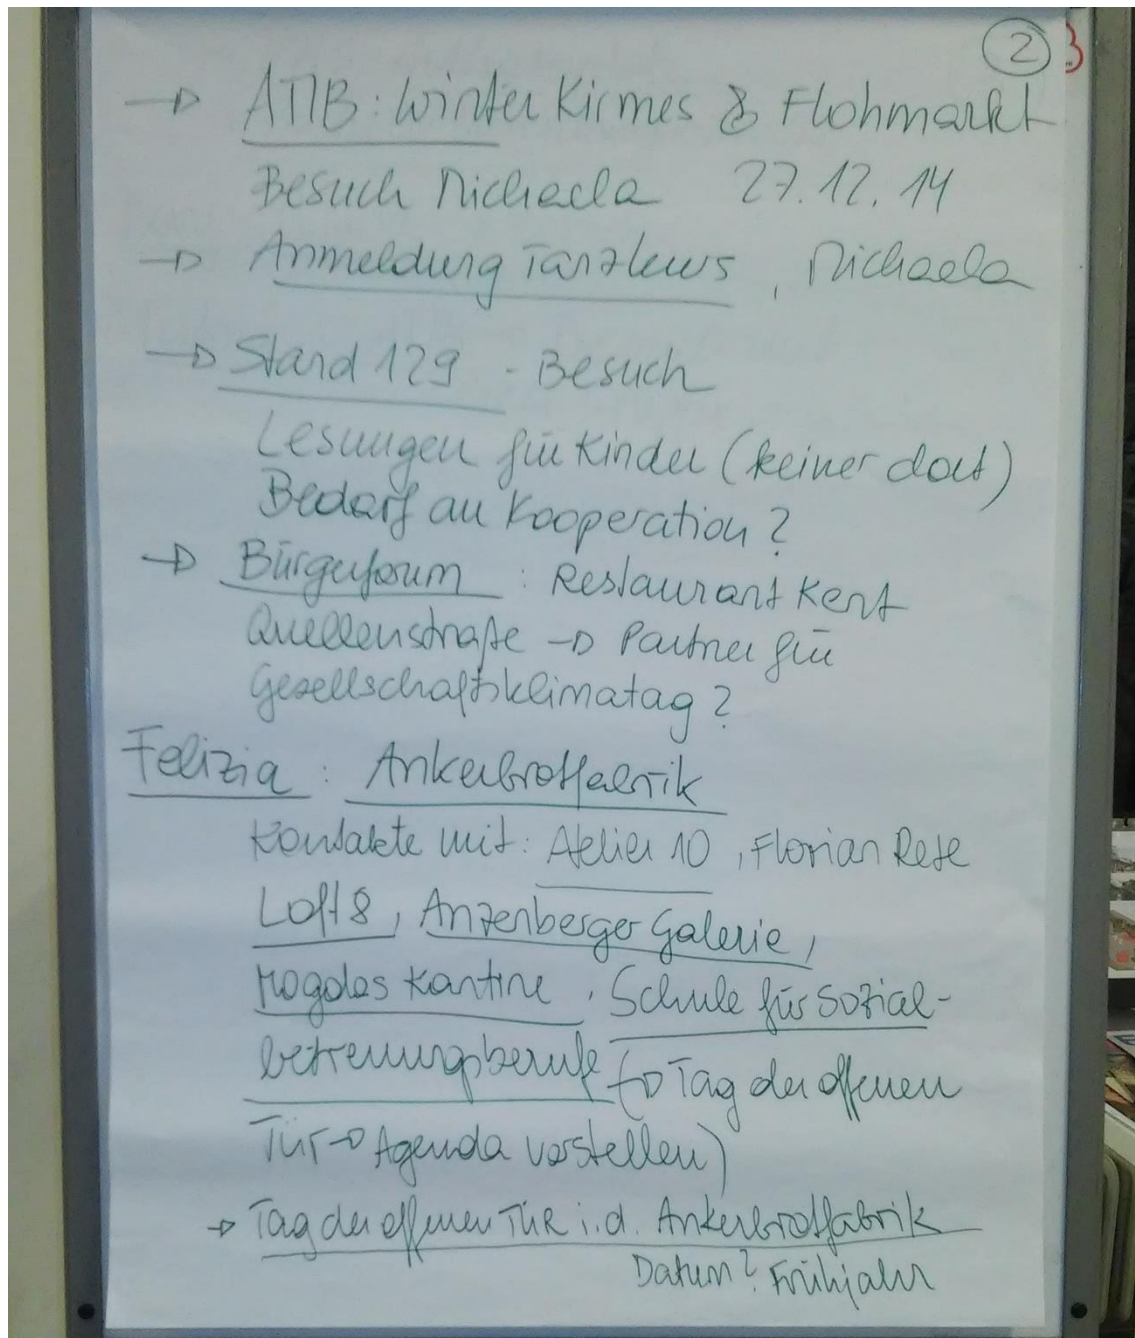 2
→ ATIB: Winter Kirmes & Flohmarkt
Besuch Michaela 27.12.14
→ Anmeldung Tanzkurs, Michaela
→ Stand 129 - Besuch
Lesungen für Kinder (keiner dort)
Bedarf an Kooperation?
→ Bürgerforum: Restaurant Kent
Quellenstraße → Partner für
Gesellschaftsklimatag?
Felizia: Ankerbrotfabrik
Kontakte mit: Atelier 10, Florian
Loft 8, Anzenberger Galerie,
magdas Kantine, Schule für Sozial-
betreuungsberufe (→ Tag der offenen
Tür → Agenda vorstellen)
→ Tag der offenen TÜR i.d. Ankerbrotfabrik
Datum? Frühjahr